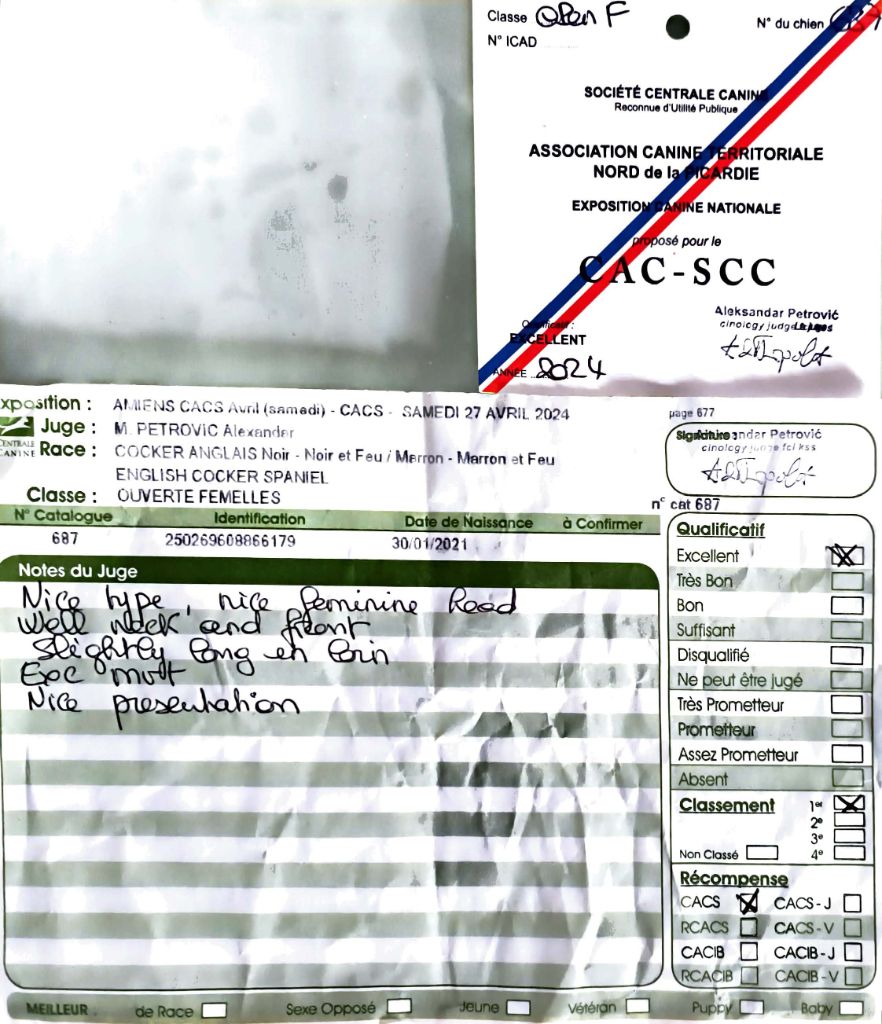 Classe Open F
N° du chien 687
N° ICAD
SOCIÉTÉ CENTRALE CANINE
Reconnue d'Utilité Publique
ASSOCIATION CANINE TERRITORIALE
NORD de la PICARDIE
EXPOSITION CANINE NATIONALE
proposé pour le
CAC-SCC
Aleksandar Petrović
cinology judge
Qualificatif :
EXCELLENT
ANNÉE 2024
xposition : AMIENS CACS Avril (samedi) - CACS - SAMEDI 27 AVRIL 2024
page 677
Juge : M. PETROVIC Alexandar
CENTRALE
CANINE
Race : COCKER ANGLAIS Noir - Noir et Feu / Marron - Marron et Feu
ENGLISH COCKER SPANIEL
Classe : OUVERTE FEMELLES
Signature : andar Petrović
cinology judge fci kss
n° cat 687
N° Catalogue Identification Date de Naissance à Confirmer
687 250269608866179 30/01/2021
Notes du Juge
Nice type, nice feminine head
Well neck and front
Slightly long en loin
Exc
Nice presentation
Qualificatif
Excellent
Très Bon
Bon
Suffisant
Disqualifié
Ne peut être jugé
Très Prometteur
Prometteur
Assez Prometteur
Absent
Classement 1er
2e
3e
Non Classé 4e
Récompense
CACS CACS - J
RCACS CACS - V
CACIB CACIB - J
RCACIB CACIB - V
MEILLEUR de Race Sexe Opposé Jeune Vétéran Puppy Baby